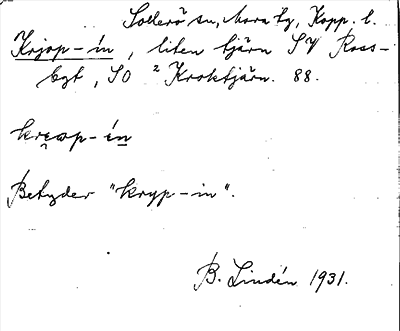 Sollerö sn, Mora tg, Kopp. l.
Krjop-ín, liten tjärn SV Ross-
byt, SO ² Kroktjärn. 88.
krea̯p-ín
Betyder "kryp-in".
B. Lindén 1931.